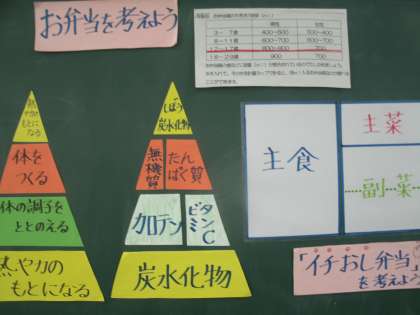 お弁当を考えよう
男性
女性
3～5歳
6～11歳
12～17歳
18～29歳
900
700
熱や力の
もとに
なる
体を
つくる
体の調子を
ととのえる
熱や力の
もとになる
しぼう
炭水化物
無機質
たんぱく質
カロテン
ビタミンC
炭水化物
主食
主菜
副菜
「イチおし弁当」
を考えよう